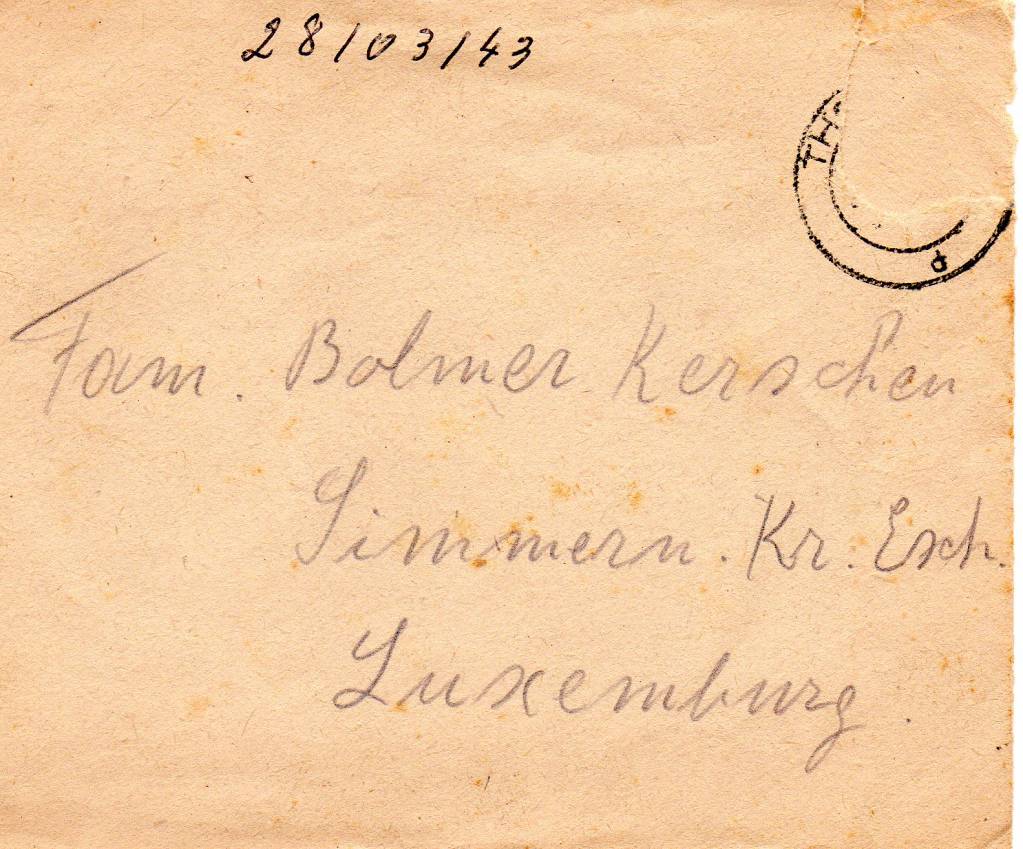 28/03/43
TH
d
Fam. Bolmer Kerschen
Simmern. Kr. Esch.
Luxemburg.